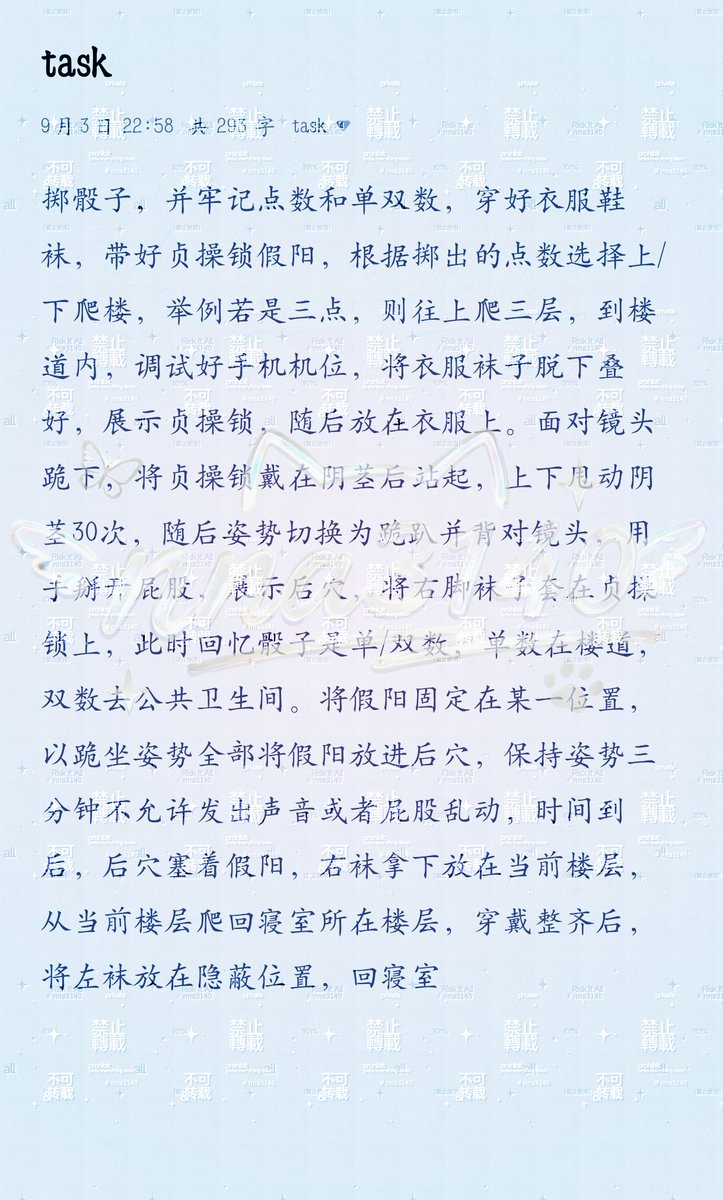 task
9月3日 22:58 共 293 字 task
掷骰子，并牢记点数和单双数，穿好衣服鞋
袜，带好贞操锁假阳，根据掷出的点数选择上/
下爬楼，举例若是三点，则往上爬三层，到楼
道内，调试好手机机位，将衣服袜子脱下叠
好，展示贞操锁，随后放在衣服上。面对镜头
跪下，将贞操锁戴在阴茎后站起，上下甩动阴
茎30次，随后姿势切换为跪趴并背对镜头，用
手掰开屁股，展示后穴，将右脚袜子套在贞操
锁上，此时回忆骰子是单/双数，单数在楼道，
双数去公共卫生间。将假阳固定在某一位置，
以跪坐姿势全部将假阳放进后穴，保持姿势三
分钟不允许发出声音或者屁股乱动，时间到
后，后穴塞着假阳，右袜拿下放在当前楼层，
从当前楼层爬回寝室所在楼层，穿戴整齐后，
将左袜放在隐蔽位置，回寝室
nna3140
禁止
轉載
不可
转载
Risk it All
# nna3140
private
prohibit
101%
all
（禁止使用）